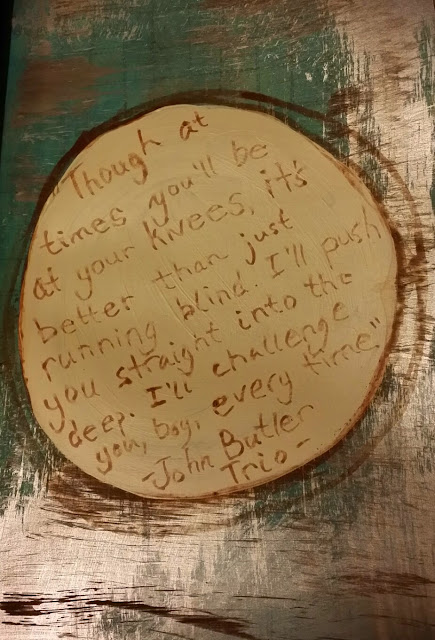 "Though at
times you'll be
at your knees, it's
better than just
running blind. I'll push
you straight into the
deep. I'll challenge
you, boy, every time."
-John Butler
Trio-